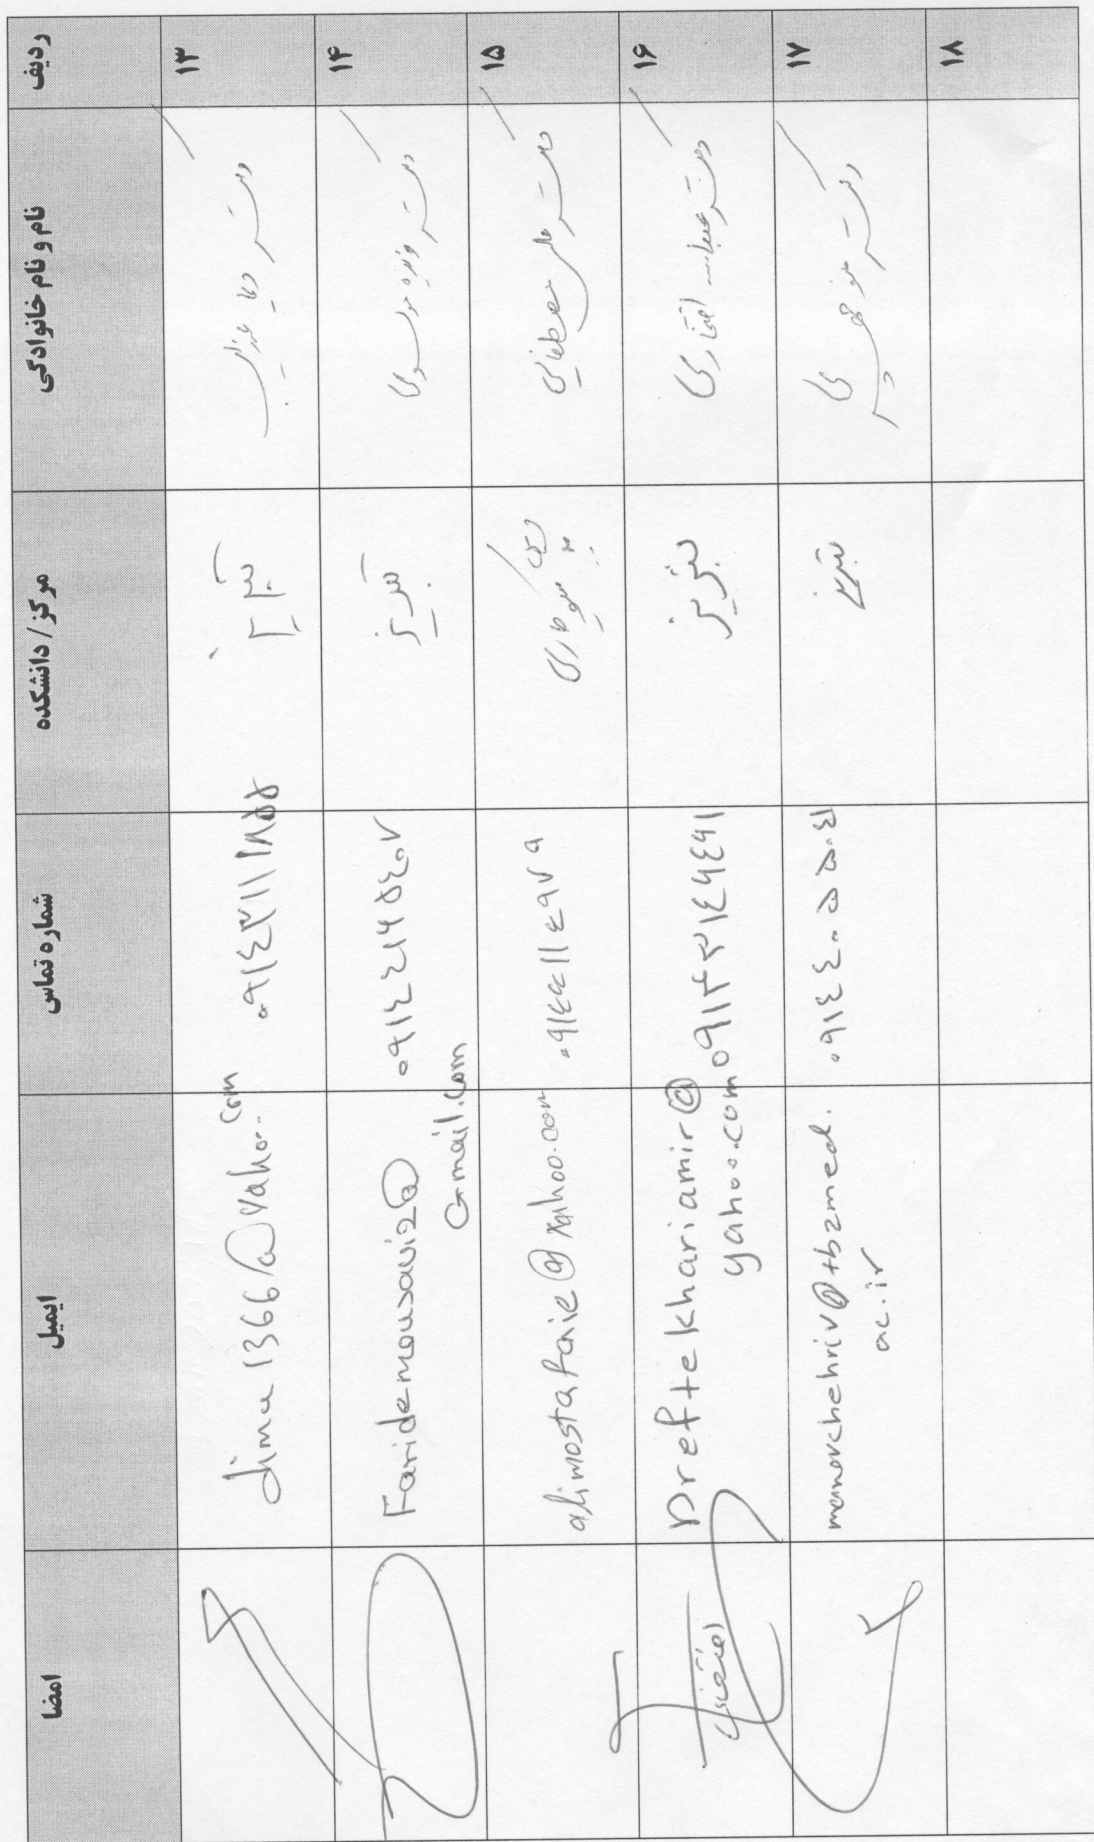 ردیف نام و نام خانوادگی مرکز / دانشکده شماره تماس ایمیل امضا
۱۳ دکتر تبریز ۰۹۱٤۳۱۱۱۸۵۵
dima1366@yahoo.com
۱۴ دکتر فریده موسوی تبریز ۰۹۱٤٤۱۶۵٤۰۷
Faridemousavi2@
Gmail.com
۱۵ دکتر علی مصطفایی
alimostafaie@yahoo.com
۱۶ دکتر عباس افتخاری تبریز ۰۹۱۴۳۱٤۶٤۶۱
Dreftekhariamir@
yahoo.com
۱۷ دکتر منوچهری تبریز ۰۹۱٤٤۰۵۵۰٤۱
manouchehriv@tbzmed.
ac.ir
۱۸